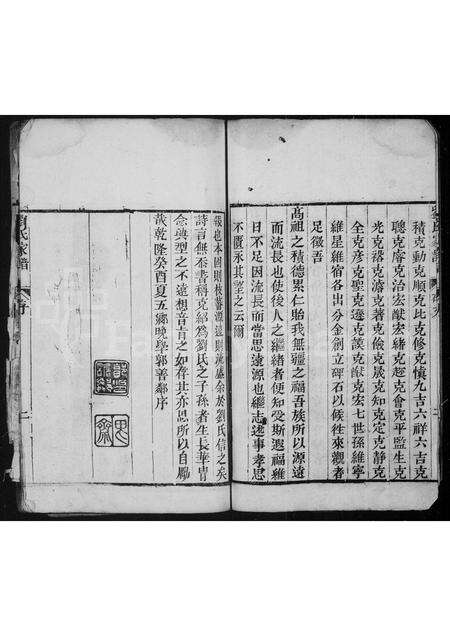 積克動克順克比克修克慎九吉六祥六吉克
聰克睿克治宏猷宏緒克超克會克平監生克
光克裕克濤克著克儉克晟克知克定克靜克
全克彥克聖克遴克謨猷克宏七世孫維寧
維星維宿各出分金劍立碑石以候徃來觀者
足徵吾
高祖之積德累仁貽我無疆之福吾族所以源遠
而流長也使後人之繼緒者便知受斯遐福維
日不足因流長而當思遠源也繼志述事孝思
不匱永其望之云爾
報也本固則枝蕃源遠則流盛余於劉氏信之矣
詩言無忝書稱克紹為劉氏之子孫者生長華冑
念典型之不遠想音旨之如存其亦思所以自勵
哉乾隆癸酉夏五鄉晚學郭善鄰序
劉氏家譜
序
二